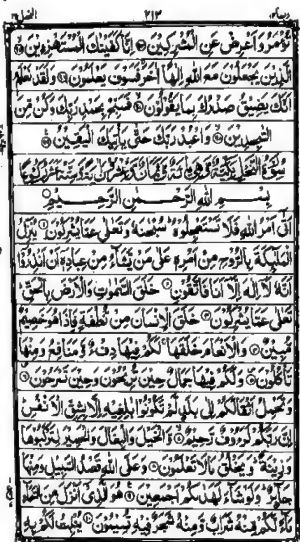 ربما ١٤ ٢١٣ النحل ١٦
تُؤْمَرُ وَأَعْرِضْ عَنِ الْمُشْرِكِينَ ۝ إِنَّا كَفَيْنَاكَ الْمُسْتَهْزِءِينَ ۝
الَّذِينَ يَجْعَلُونَ مَعَ اللَّهِ إِلَٰهًا آخَرَ فَسَوْفَ يَعْلَمُونَ ۝ وَلَقَدْ نَعْلَمُ
أَنَّكَ يَضِيقُ صَدْرُكَ بِمَا يَقُولُونَ ۝ فَسَبِّحْ بِحَمْدِ رَبِّكَ وَكُنْ مِنَ
السَّاجِدِينَ ۝ وَاعْبُدْ رَبَّكَ حَتَّىٰ يَأْتِيَكَ الْيَقِينُ ۝
سُورَةُ النَّحْلِ مَكِّيَّةٌ وَهِيَ مِائَةٌ وَثَمَانٌ وَعِشْرُونَ آيَةً وَسِتَّةَ عَشَرَ رُكُوعًا
بِسْمِ اللَّهِ الرَّحْمَٰنِ الرَّحِيمِ
أَتَىٰ أَمْرُ اللَّهِ فَلَا تَسْتَعْجِلُوهُ سُبْحَٰنَهُ وَتَعَالَىٰ عَمَّا يُشْرِكُونَ ۝ يُنَزِّلُ
الْمَلَٰئِكَةَ بِالرُّوحِ مِنْ أَمْرِهِ عَلَىٰ مَنْ يَشَاءُ مِنْ عِبَادِهِ أَنْ أَنْذِرُوا
أَنَّهُ لَا إِلَٰهَ إِلَّا أَنَا فَاتَّقُونِ ۝ خَلَقَ السَّمَٰوَٰتِ وَالْأَرْضَ بِالْحَقِّ
تَعَالَىٰ عَمَّا يُشْرِكُونَ ۝ خَلَقَ الْإِنْسَانَ مِنْ نُطْفَةٍ فَإِذَا هُوَ خَصِيمٌ
مُبِينٌ ۝ وَالْأَنْعَامَ خَلَقَهَا لَكُمْ فِيهَا دِفْءٌ وَمَنَافِعُ وَمِنْهَا
تَأْكُلُونَ ۝ وَلَكُمْ فِيهَا جَمَالٌ حِينَ تُرِيحُونَ وَحِينَ تَسْرَحُونَ ۝
وَتَحْمِلُ أَثْقَالَكُمْ إِلَىٰ بَلَدٍ لَمْ تَكُونُوا بَالِغِيهِ إِلَّا بِشِقِّ الْأَنْفُسِ
إِنَّ رَبَّكُمْ لَرَءُوفٌ رَحِيمٌ ۝ وَالْخَيْلَ وَالْبِغَالَ وَالْحَمِيرَ لِتَرْكَبُوهَا
وَزِينَةً وَيَخْلُقُ مَا لَا تَعْلَمُونَ ۝ وَعَلَى اللَّهِ قَصْدُ السَّبِيلِ وَمِنْهَا
جَائِرٌ وَلَوْ شَاءَ لَهَدَاكُمْ أَجْمَعِينَ ۝ هُوَ الَّذِي أَنْزَلَ مِنَ السَّمَاءِ
مَاءً لَكُمْ مِنْهُ شَرَابٌ وَمِنْهُ شَجَرٌ فِيهِ تُسِيمُونَ ۝ يُنْبِتُ لَكُمْ بِهِ